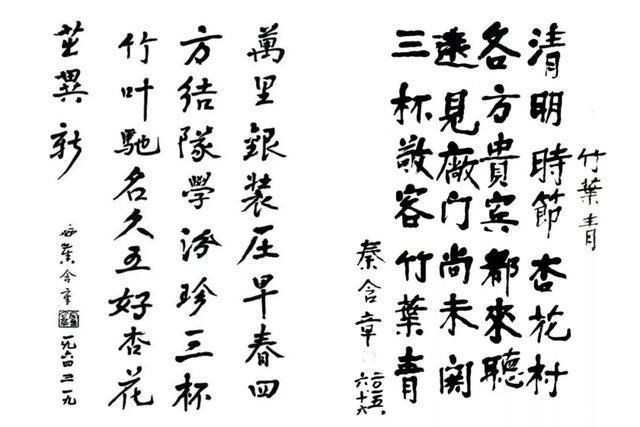 竹葉青
清明時節杏花村
各方貴賓都來聽
遠見廠门尚未関
三杯敬客竹葉青
秦含章
萬里銀装压早春四
方结隊學汾珍三杯
竹叶馳名久五好杏花
異新
含章
一九六四三一九